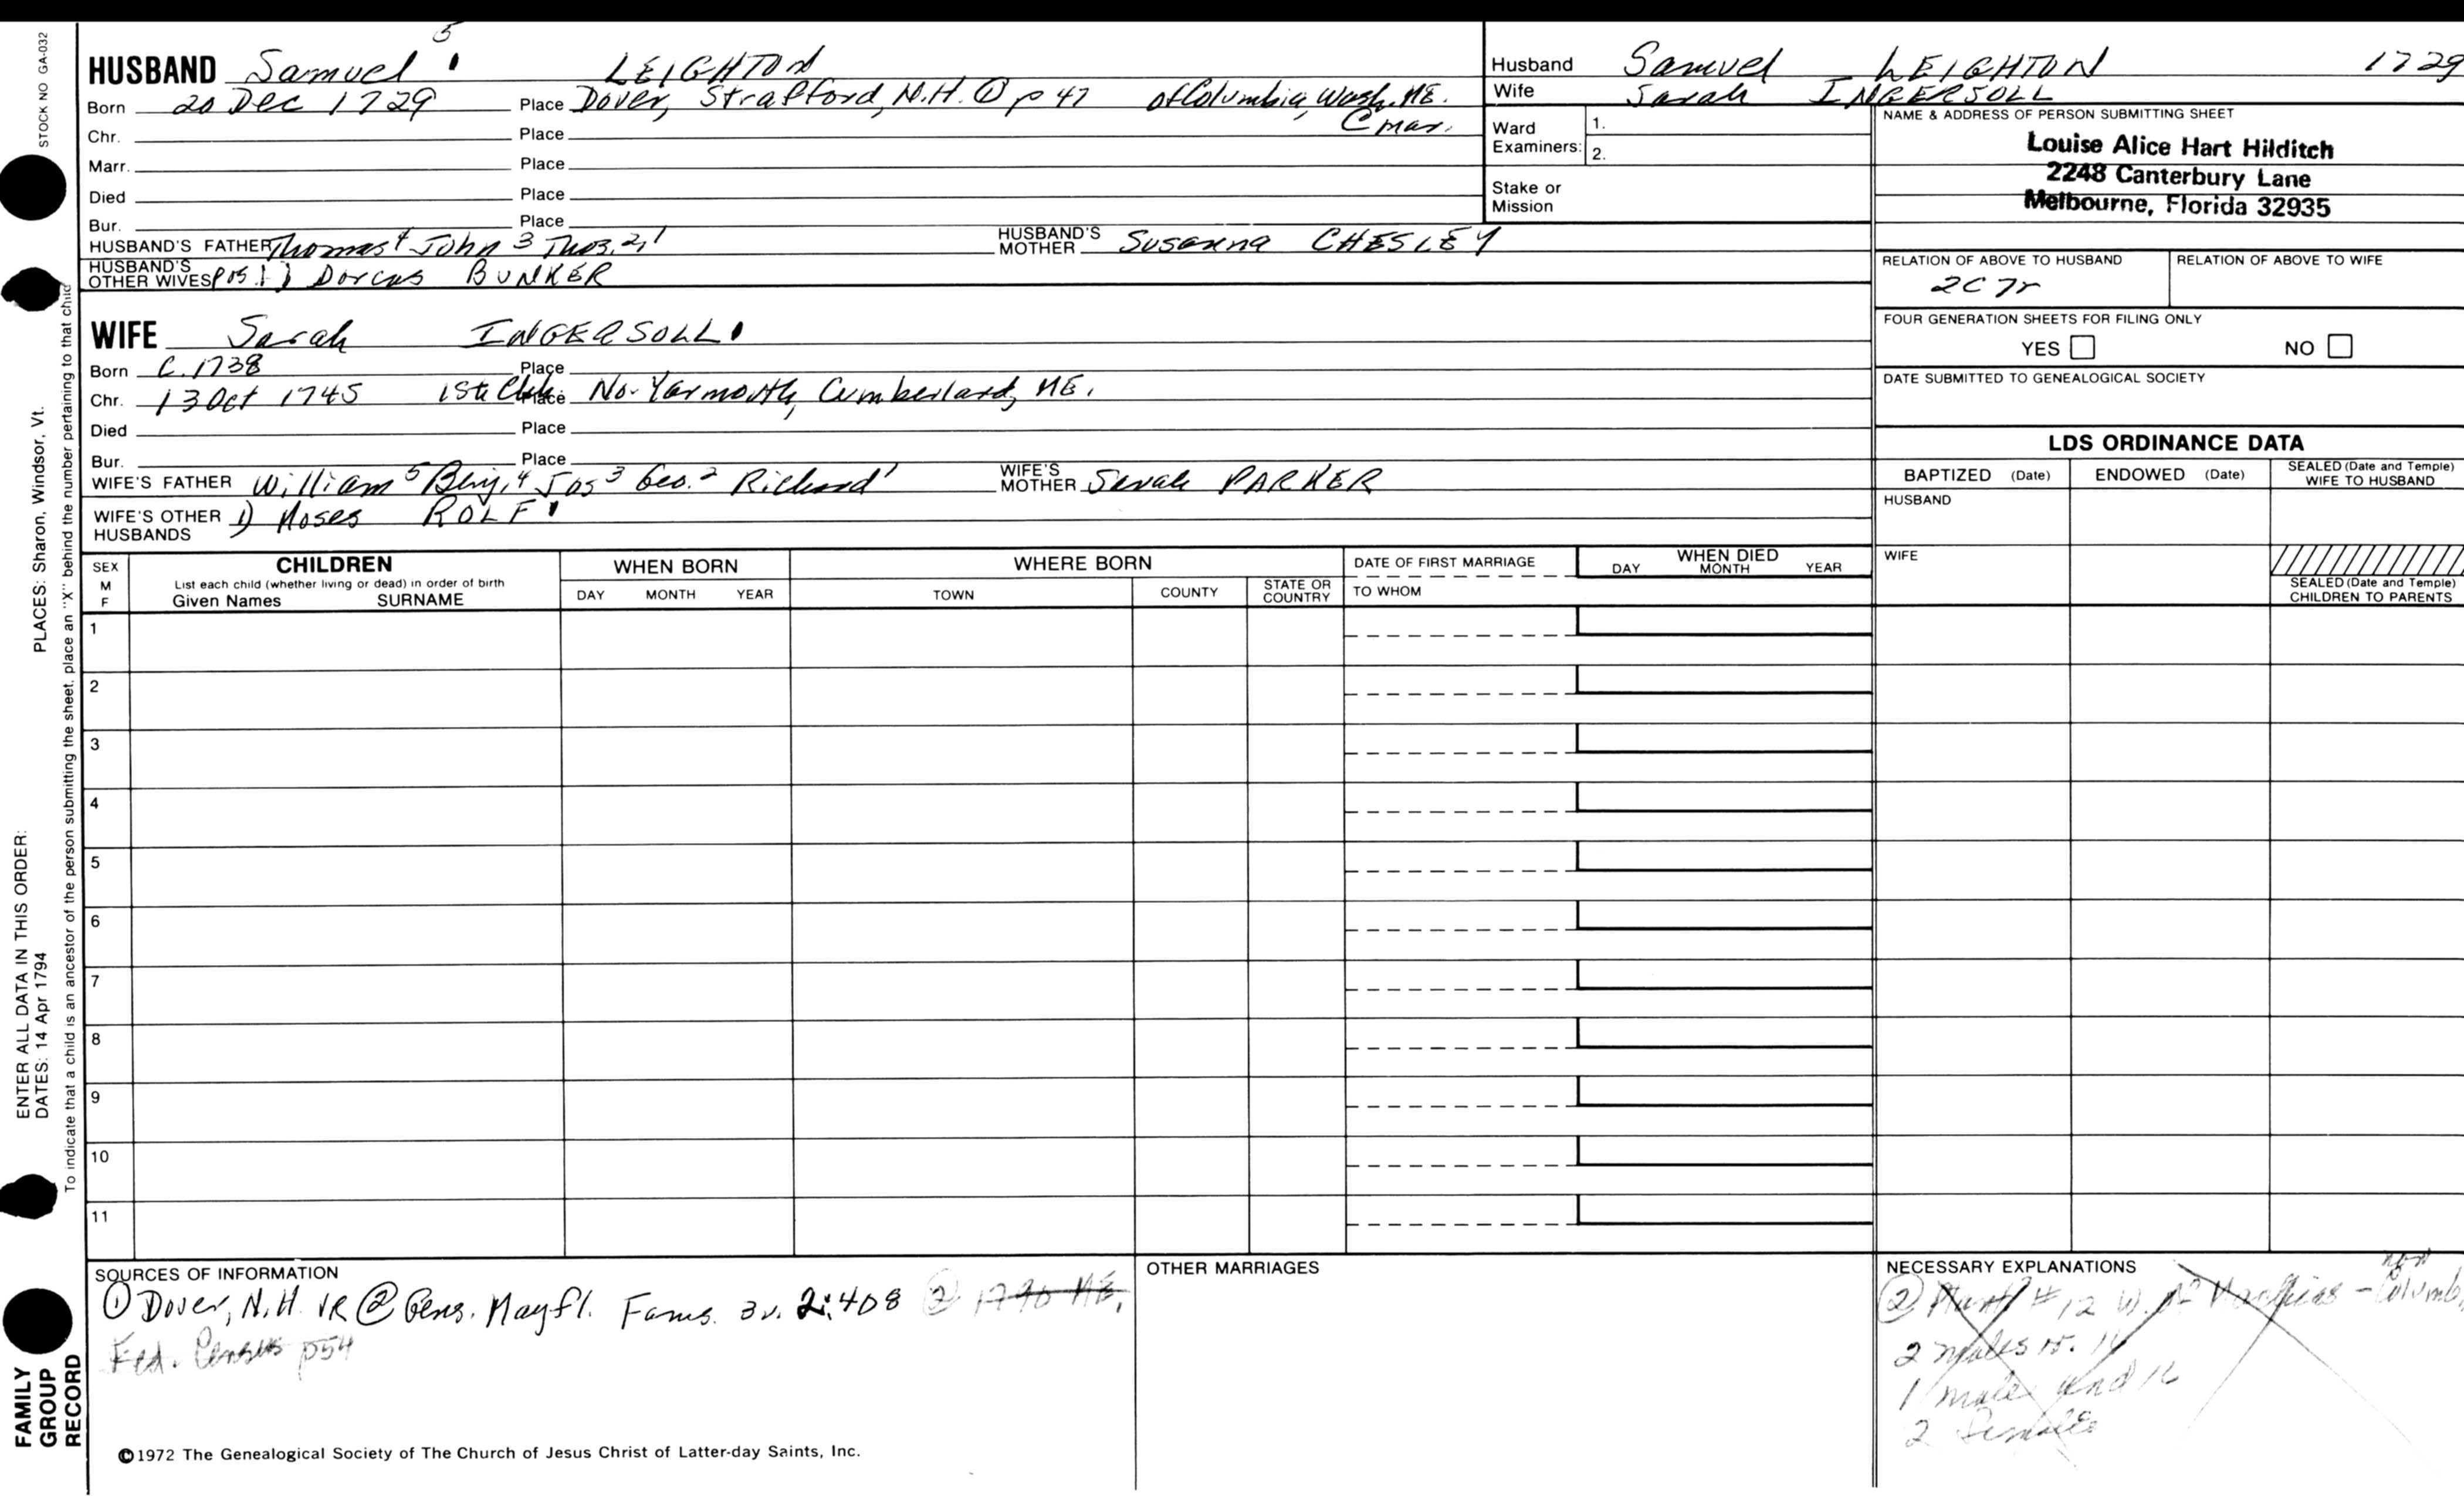 STOCK NO GA-032
PLACES: Sharon, Windsor, Vt.
ENTER ALL DATA IN THIS ORDER:
DATES: 14 Apr 1794
To indicate that a child is an ancestor of the person submitting the sheet, place an "X" behind the number pertaining to that child
FAMILY
GROUP
RECORD
5
HUSBAND Samuel LEIGHTON
Born 20 Dec 1729 Place Dover, Strafford, N.H. ① p 47 of Columbia, Wash. ME.
Chr. Place C mar.
Marr. Place
Died Place
Bur. Place
HUSBAND'S FATHER Thomas 4 John 3 Thos. 2, 1 HUSBAND'S MOTHER Susanna CHESLEY
HUSBAND'S OTHER WIVES pos. 1) Dorcas BUNKER
WIFE Sarah INGERSOLL
Born C. 1738 Place
Chr. 13 Oct 1745 1st Chh. Place No. Yarmouth, Cumberland, ME.
Died Place
Bur. Place
WIFE'S FATHER William 5 Benj. 4 Jos 3 Geo. 2 Richard 1 WIFE'S MOTHER Sarah PARKER
WIFE'S OTHER HUSBANDS 1) Moses ROLF
Husband Samuel LEIGHTON 1729
Wife Sarah INGERSOLL
Ward Examiners: 1.
2.
Stake or Mission
NAME & ADDRESS OF PERSON SUBMITTING SHEET
Louise Alice Hart Hilditch
2248 Canterbury Lane
Melbourne, Florida 32935
RELATION OF ABOVE TO HUSBAND RELATION OF ABOVE TO WIFE
2C 7r
FOUR GENERATION SHEETS FOR FILING ONLY
YES NO
DATE SUBMITTED TO GENEALOGICAL SOCIETY
LDS ORDINANCE DATA
BAPTIZED (Date) ENDOWED (Date) SEALED (Date and Temple) WIFE TO HUSBAND
HUSBAND
WIFE
SEALED (Date and Temple) CHILDREN TO PARENTS
SEX M F CHILDREN WHEN BORN WHERE BORN DATE OF FIRST MARRIAGE WHEN DIED
List each child (whether living or dead) in order of birth
Given Names SURNAME DAY MONTH YEAR TOWN COUNTY STATE OR COUNTRY TO WHOM DAY MONTH YEAR
1
2
3
4
5
6
7
8
9
10
11
SOURCES OF INFORMATION
① Dover, N.H. VR ② Gens. Mayfl. Fams. 3 v. 2:408 ② 1790 ME.
Fed. Census p54
OTHER MARRIAGES
NECESSARY EXPLANATIONS
② #12 W. of Machias - now Columb
2 males
1 male und 16
2 females
©1972 The Genealogical Society of The Church of Jesus Christ of Latter-day Saints, Inc.